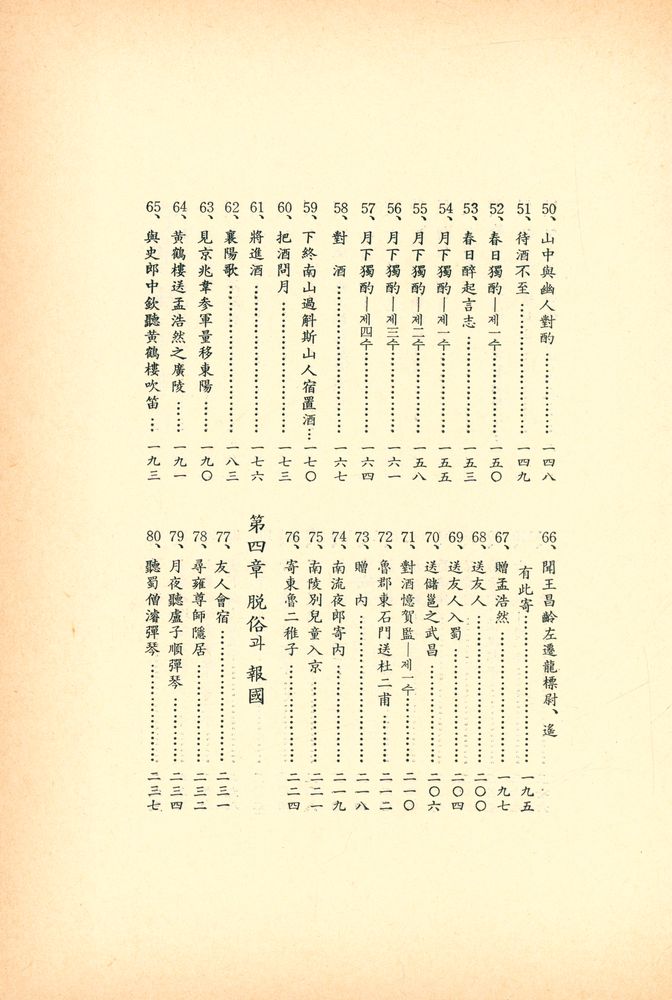 50、山中與幽人對酌……………一四八
51、待酒不至……………………一四九
52、春日獨酌—제一수…………一五〇
53、春日醉起言志………………一五三
54、月下獨酌—제一수…………一五五
55、月下獨酌—제二수…………一五八
56、月下獨酌—제三수…………一六一
57、月下獨酌—제四수…………一六四
58、對　酒………………………一六七
59、下終南山過斛斯山人宿置酒…一七〇
60、把酒問月……………………一七三
61、將進酒………………………一七六
62、襄陽歌………………………一八三
63、見京兆韋参軍量移東陽……一九〇
64、黃鶴樓送孟浩然之廣陵……一九一
65、與史郎中欽聽黃鶴樓吹笛…一九三
66、聞王昌齡左遷龍標尉、遙
有此寄…………………………一九五
67、贈孟浩然……………………一九七
68、送友人………………………二〇〇
69、送友人入蜀…………………二〇四
70、送儲邕之武昌………………二〇六
71、對酒憶賀監—제一수………二一〇
72、魯郡東石門送杜二甫………二一二
73、贈　内………………………二一八
74、南流夜郎寄内………………二一九
75、南陵別兒童入京……………二二一
76、寄東魯二稚子………………二二四
第四章 脱俗과 報國
77、友人會宿……………………二三一
78、尋雍尊師隱居………………二三二
79、月夜聽盧子順彈琴…………二三四
80、聽蜀僧濬彈琴………………二三七